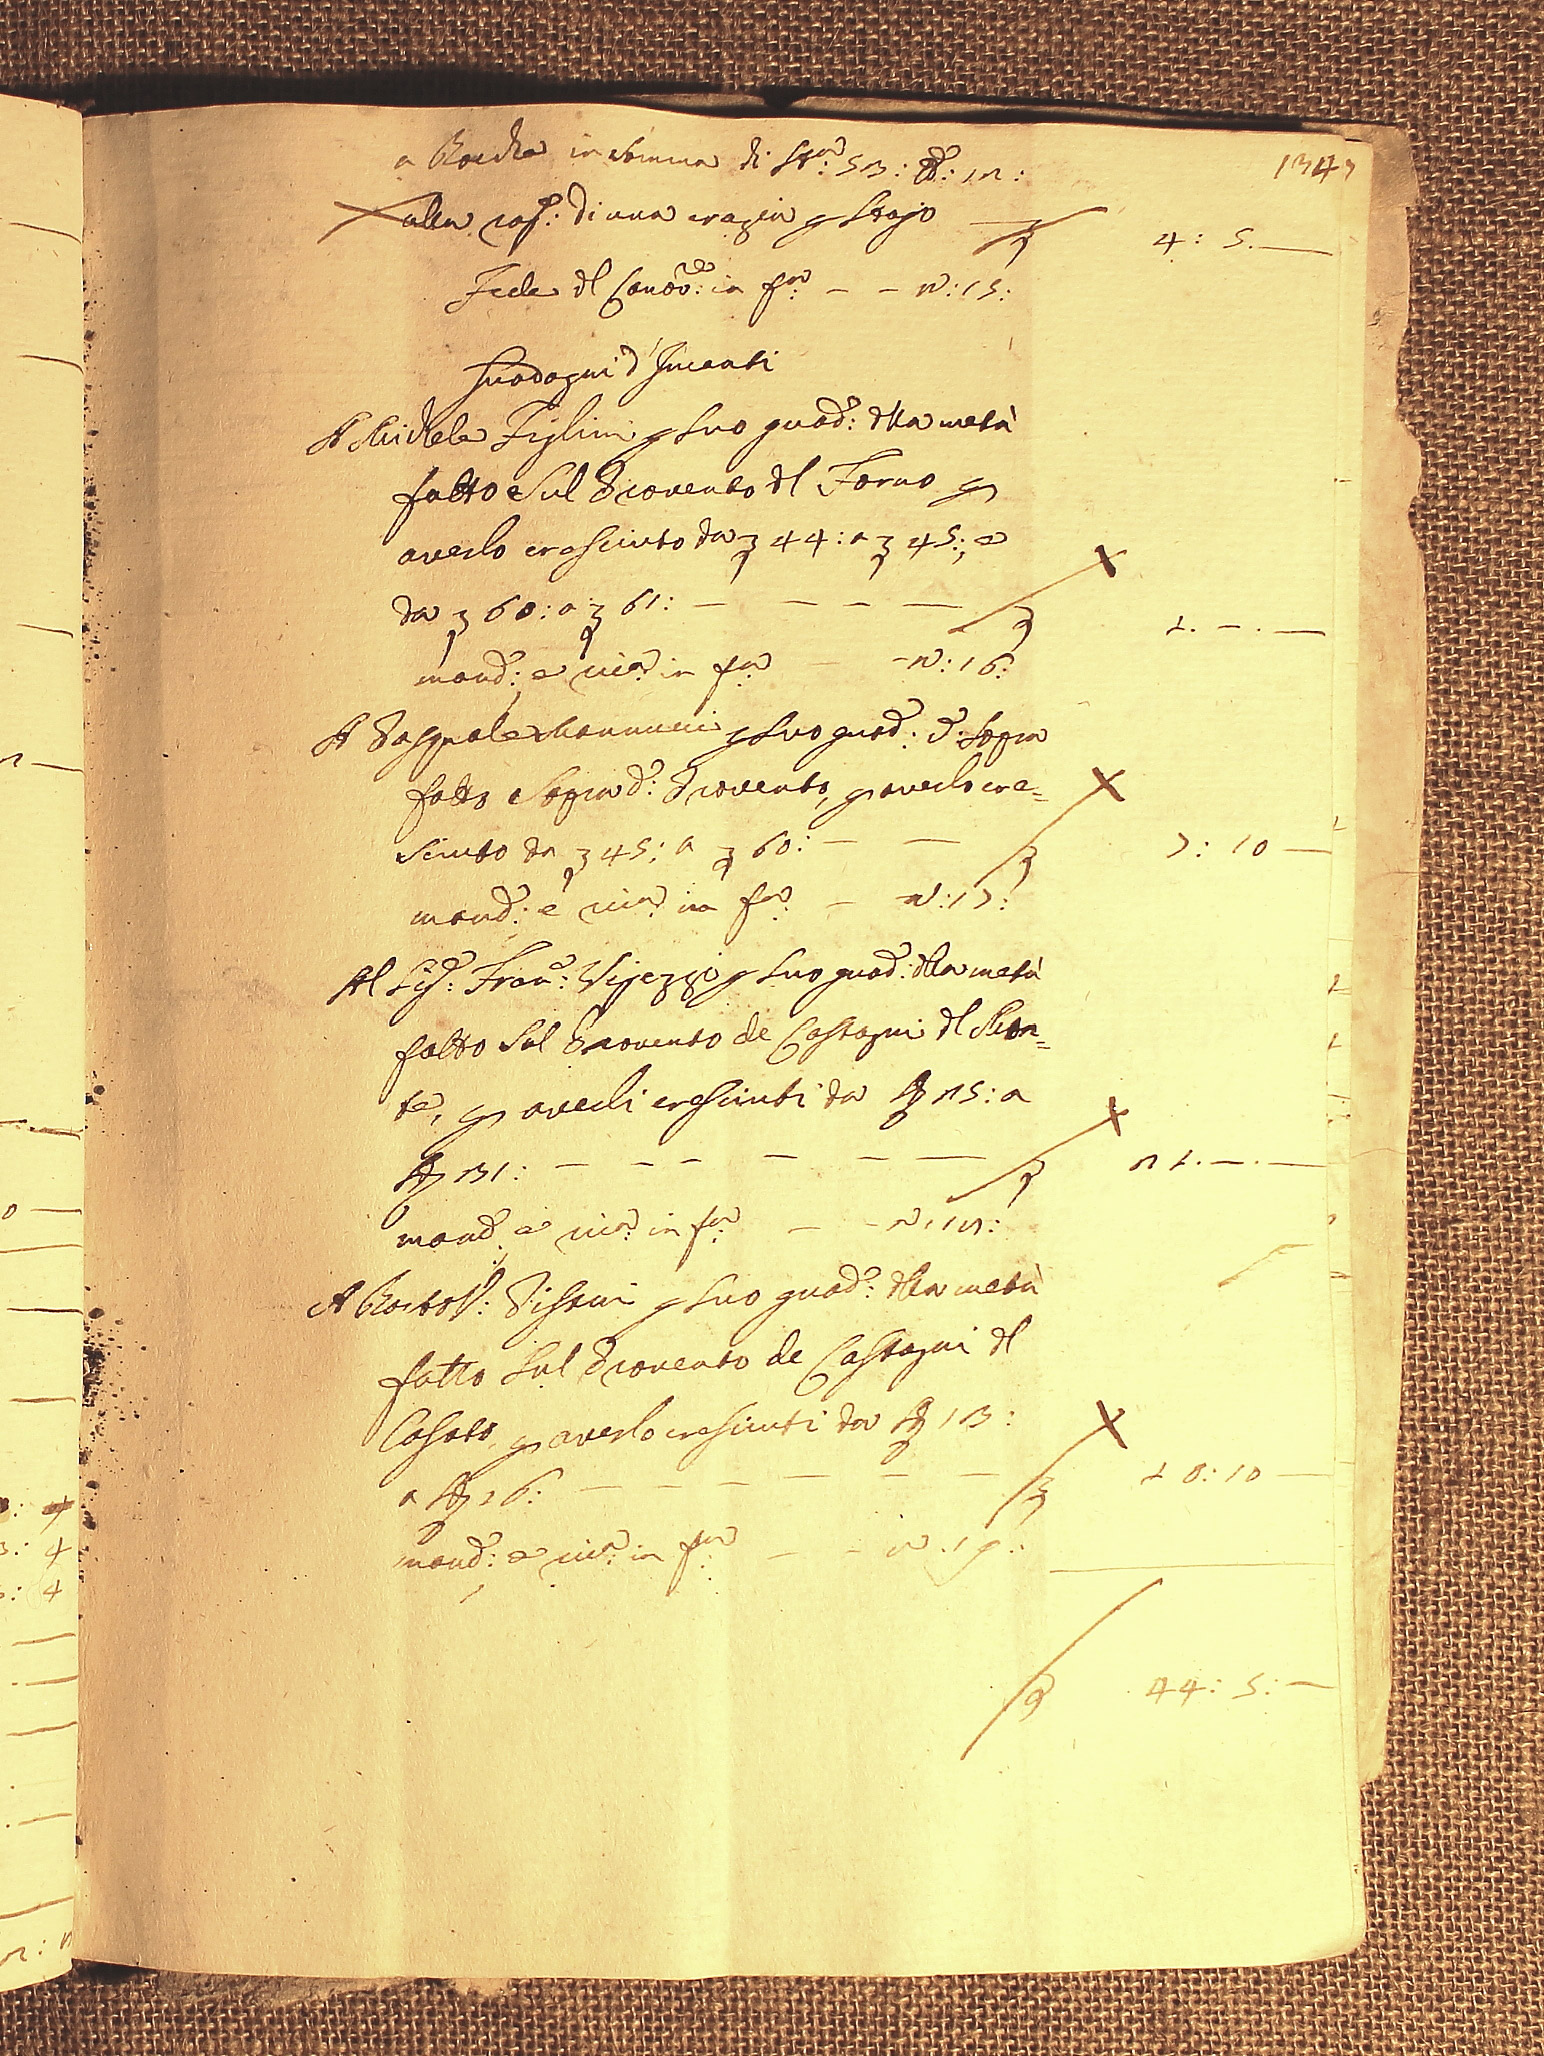 1347
a Rocha in somma di St.a 53: 12:
alla rag.e: di una crazia p Stajo 4: 5. —
Fede dl Canov.e: in f.a — — n: 15:
Guadagni d'Incanti
A Michele Figlini p suo guad.o: dlla metà
fatto sul Provento dl Forno p
averlo cresciuto da 44: a 45:, e
da 60: a 61: — — — — 1. — . —
mand.o: e ric.a in f.a — — n: 16:
A Pasquale Mannucci p suo guad.o: d.o: sopra
fatto sopra d.o: Provento, p averlo cre=
sciuto da 45: a 60: — — 7: 10 —
mand.o: e ric.a in f.a — n: 17:
Al Sig.e: Fran.o: p suo guad.o: dlla metà
fatto sul Provento de Castagni dl Mon=
te, p averli cresciuti da 25: a
31: — — — — — — 21. — . —
mand.o e ric.a in f.a — — n: 18:
A Bartol: Pisani p suo guad.o: dlla metà
fatto sul Provento de Castagni dl
Casato, p averlo cresciuti da 13:
a 16: — — — — — — 10: 10 —
mand.o: e ric.a in f.a — — n: 19:
44: 5: —